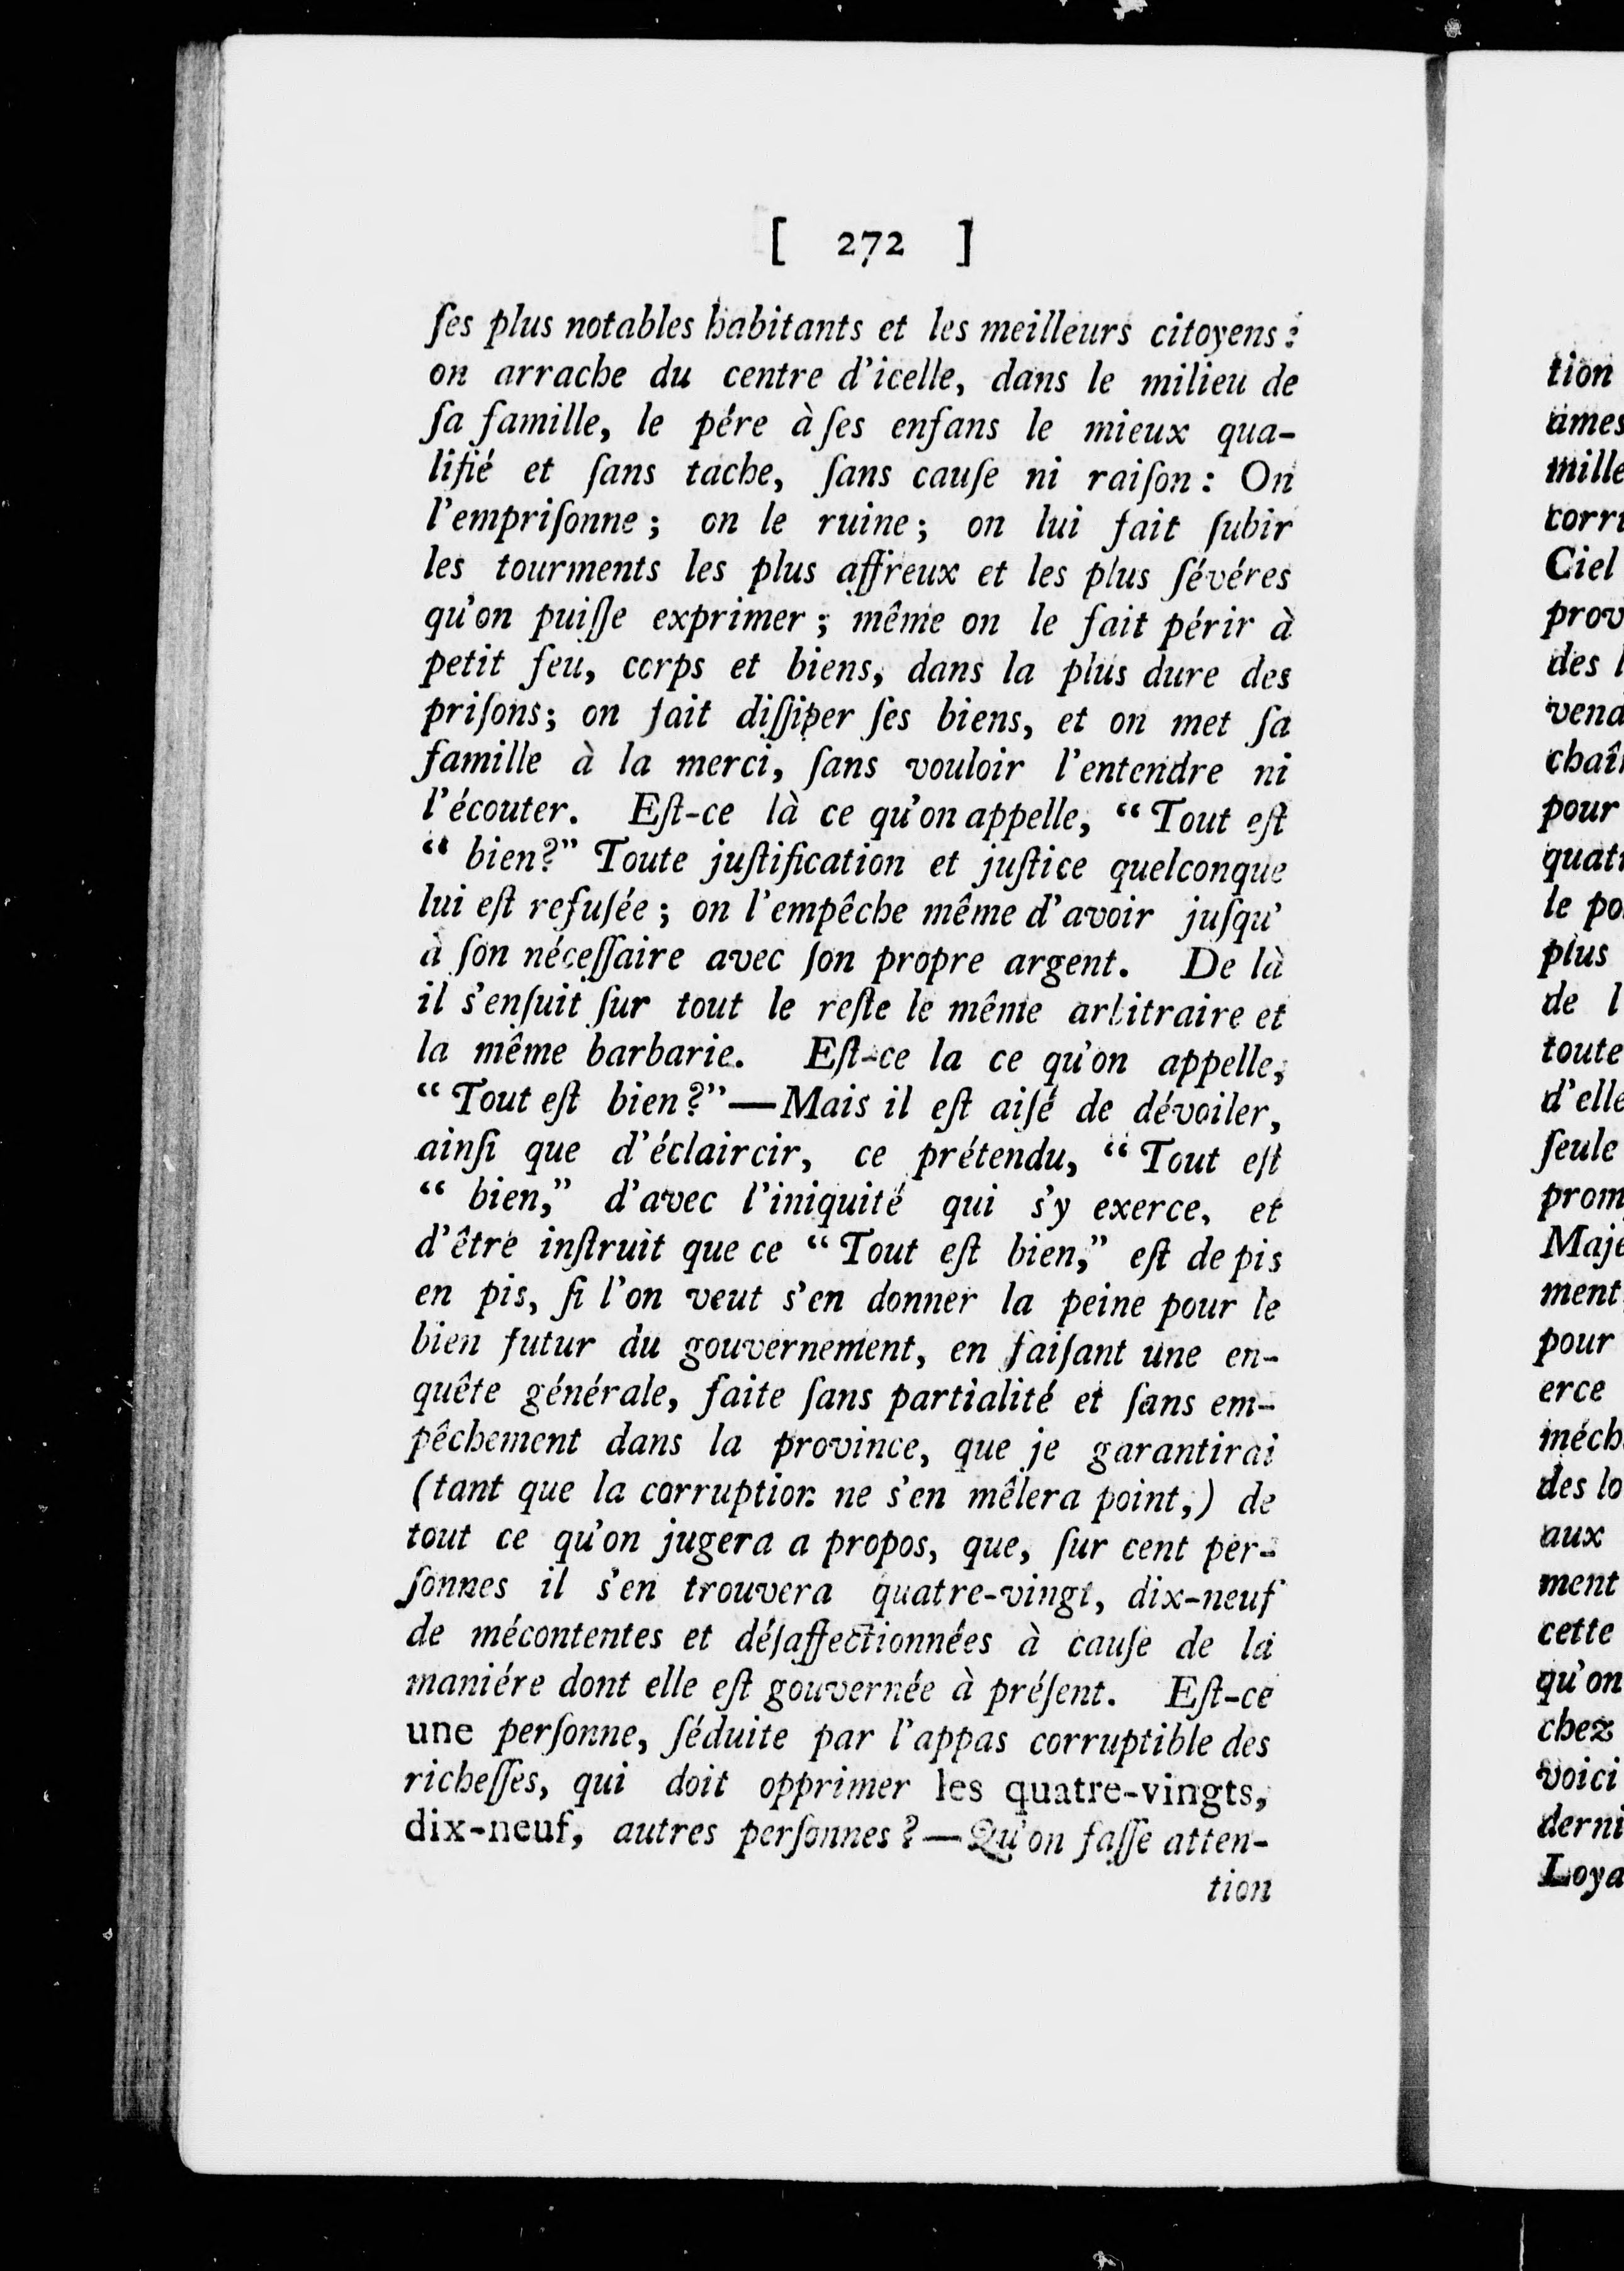 [ 272 ]
ſes plus notables habitants et les meilleurs citoyens:
on arrache du centre d'icelle, dans le milieu de
ſa famille, le pére à ſes enfans le mieux qua-
lifié et ſans tache, ſans cauſe ni raiſon: On
l'empriſonne; on le ruine; on lui fait ſubir
les tourments les plus affreux et les plus ſévéres
qu'on puiſſe exprimer; même on le fait périr à
petit feu, corps et biens, dans la plus dure des
priſons; on fait diſſiper ſes biens, et on met ſa
famille à la merci, ſans vouloir l'entendre ni
l'écouter. Eſt-ce là ce qu'on appelle, “Tout eſt
“ bien?” Toute juſtification et juſtice quelconque
lui eſt refuſée; on l'empêche même d'avoir juſqu'
à ſon néceſſaire avec ſon propre argent. De là
il s'enſuit ſur tout le reſte le même arbitraire et
la même barbarie. Eſt-ce la ce qu'on appelle,
“Tout eſt bien?”—Mais il eſt aiſé de dévoiler,
ainſi que d'éclaircir, ce prétendu, “Tout eſt
“ bien,” d'avec l'iniquité qui s'y exerce, et
d'être inſtruit que ce “Tout eſt bien,” eſt de pis
en pis, ſi l'on veut s'en donner la peine pour le
bien futur du gouvernement, en faiſant une en-
quête générale, faite ſans partialité et ſans em-
pêchement dans la province, que je garantirai
(tant que la corruption ne s'en mêlera point,) de
tout ce qu'on jugera a propos, que, ſur cent per-
ſonnes il s'en trouvera quatre-vingt, dix-neuf
de mécontentes et déſaffectionnées à cauſe de la
maniére dont elle eſt gouvernée à préſent. Eſt-ce
une perſonne, ſéduite par l'appas corruptible des
richeſſes, qui doit opprimer les quatre-vingts,
dix-neuf, autres perſonnes?—Qu'on faſſe atten-
tion
tion
ames
mille
corr
Ciel
prov
des
vend
chaî
pour
quat
le po
plus
de l
toute
d'elle
ſeule
prom
Maje
ment
pour
erce
méch
des lo
aux
ment
cette
qu'on
chez
voici
derni
Loya